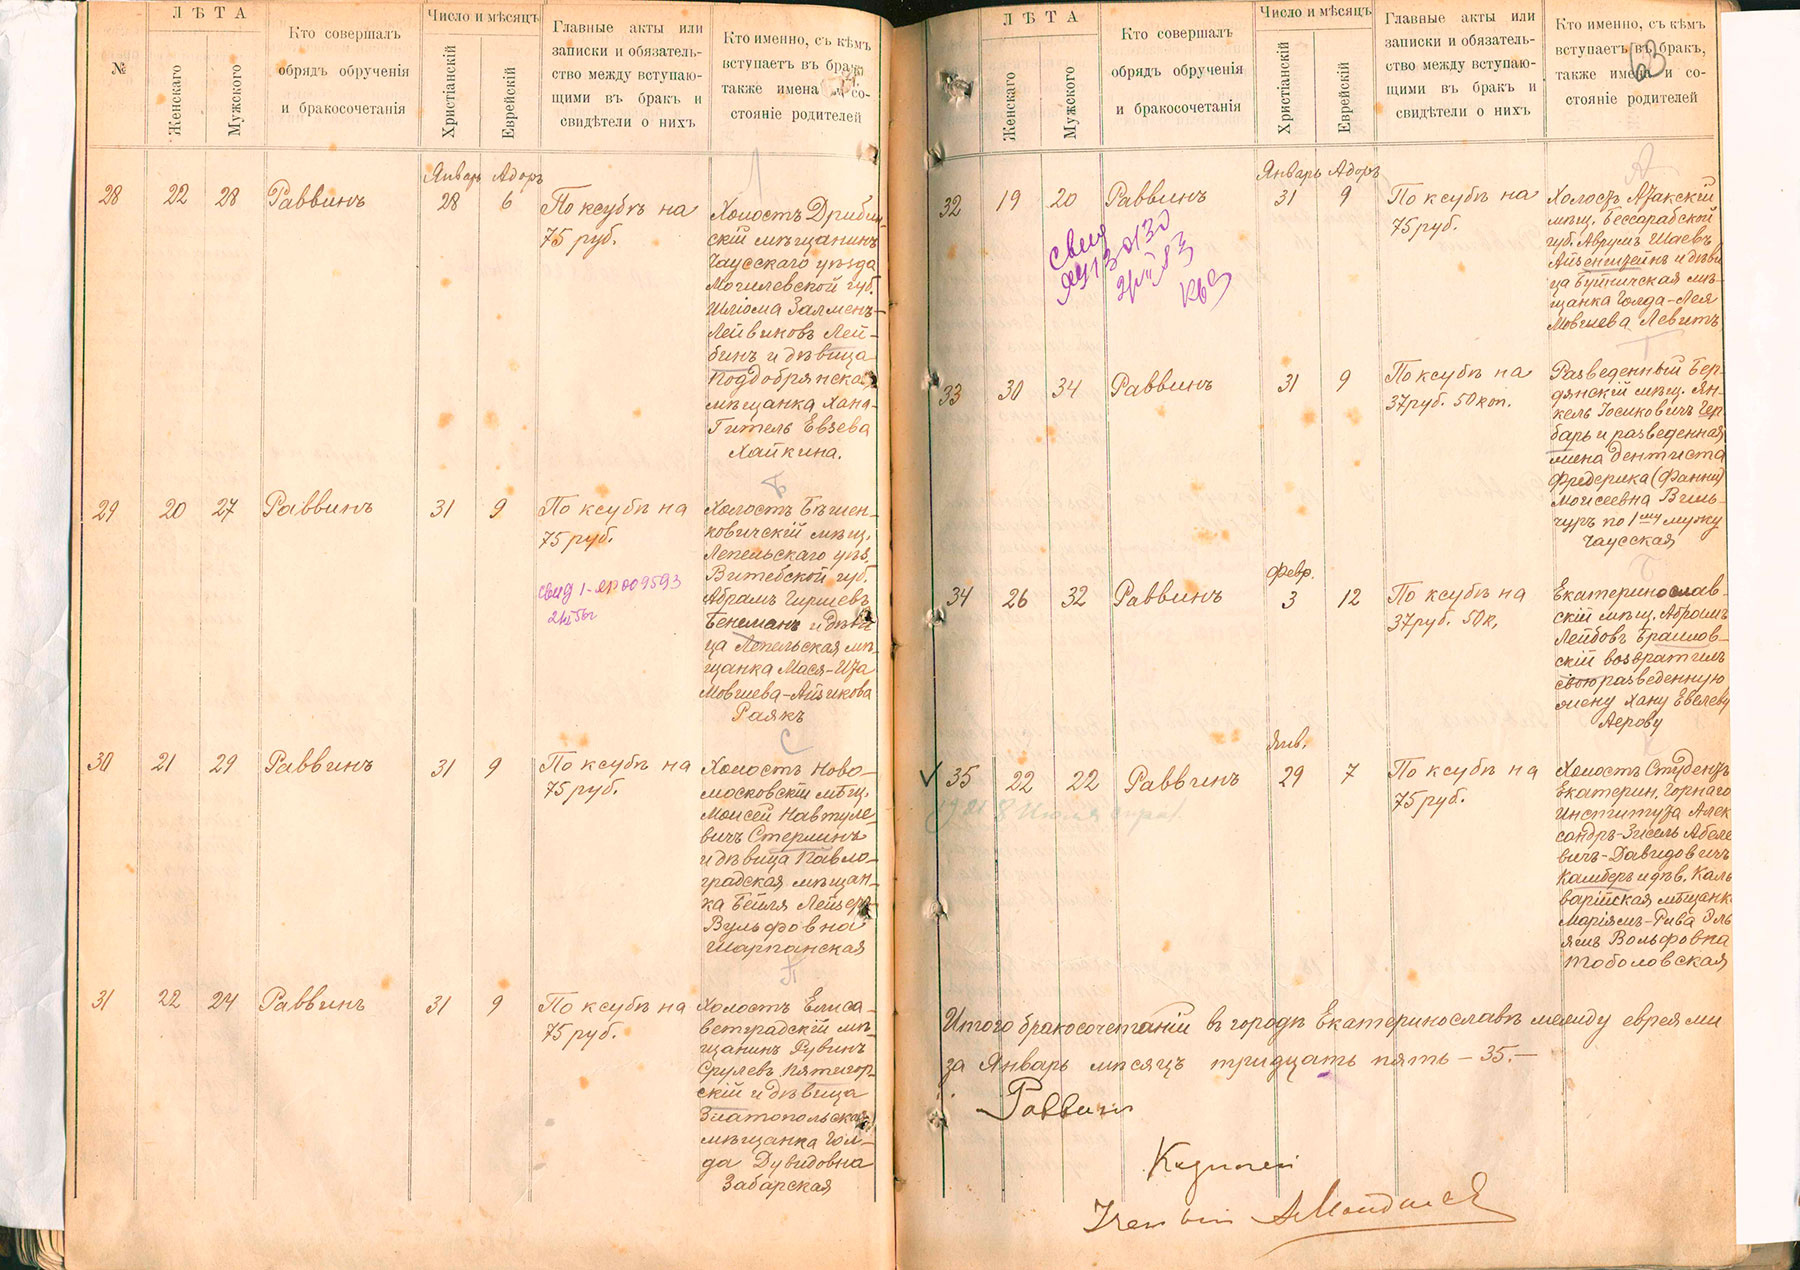 №
ЛѢТА
Женскаго
Мужского
Кто совершалъ
обрядъ обрученія
и бракосочетанія
Число и мѣсяцъ
Христіанскій
Еврейскій
Главные акты или
записки и обязатель-
ство между вступаю-
щими въ бракъ и
свидѣтели о нихъ
Кто именно, съ кѣмъ
вступаетъ въ бракъ,
также имена и со-
стояніе родителей
Январь Адоръ
28 22 28 Раввинъ 28 6
По ксубѣ на
75 руб.
Холостъ Дрибин-
скій мѣщанинъ
Чаусскаго уѣзда
Могилевской губ.
Шліома Залменъ-
Лейвиковъ Лей-
бинъ и дѣвица
Поддобрянская
мѣщанка Хана-
Гитель Евзева
Хайкина.
29 20 27 Раввинъ 31 9
По ксубѣ на
75 руб.
свид 1-ЯР009593
Холостъ Бѣшен-
ковичскій мѣщ.
Лепельскаго уѣз.
Витебской губ.
Абрамъ Гиршевъ
Бенсманъ и дѣви
ца Лепельская мѣ-
щанка Мася-Иза
Мовшева-Айзикова
Раякъ
30 21 29 Раввинъ 31 9
По ксубѣ на
75 руб.
Холостъ Ново-
московскій мѣщ.
Моисей Навтуле-
вичъ Стерлинъ
и дѣвица Павло-
градская мѣщан-
ка Бейля Лейзер
Вульфовна
Шарпанская
31 22 24 Раввинъ 31 9
По ксубѣ на
75 руб.
Холостъ Елиса-
ветградскій мѣ-
щанинъ Рувинъ
Срулевъ Пятигор-
скій и дѣвица
Златопольская
мѣщанка Гол-
да Дувидовна
Забарская
53
ЛѢТА
Женскаго
Мужского
Кто совершалъ
обрядъ обрученія
и бракосочетанія
Число и мѣсяцъ
Христіанскій
Еврейскій
Главные акты или
записки и обязатель-
ство между вступаю-
щими въ бракъ и
свидѣтели о нихъ
Кто именно, съ кѣмъ
вступаетъ въ бракъ,
также имена и со-
стояніе родителей
Январь Адоръ
32 19 20 Раввинъ 31 9
По ксубѣ на
75 руб.
Холостъ
мѣщ. Бессарабской
губ. Аврумъ Шаевъ
Айзенштейнъ и дѣви
ца мѣ-
щанка Голда-Лея
Мовшева Левитъ
33 30 34 Раввинъ 31 9
По ксубѣ на
37 руб. 50 коп.
Разведенный Бер-
дянскій мѣщ. Ян-
кель Госиковичъ Гер-
баръ и разведенная
жена дентиста
Фредерика (Фанни)
Моисеевна Виль-
чуръ по 1му мужу
Чаусская
Февр.
34 26 32 Раввинъ 3 12
По ксубѣ на
37 руб. 50 к,
Екатеринослав-
скій мѣщ. Абрамъ
Лейбовъ Браилов-
скій возвратилъ
свою разведенную
жену Хану Евелеву
Аерову
Янв.
35 22 22 Раввинъ 29 7
По ксубѣ на
75 руб.
Холостъ Студентъ
Екатерин. Горнаго
Института Алек
сандръ-Зисель Абеле
вичъ-Давидовичъ
Камберъ и дѣв. Каль
варійская мѣщанк
Маріямъ-Рива Эль
яшъ Вольфовна
Тоболовская
Итого бракосочетаній въ городѣ Екатеринославѣ между евреями
за Январь мѣсяцъ тридцать пять - 35.-
Раввинъ